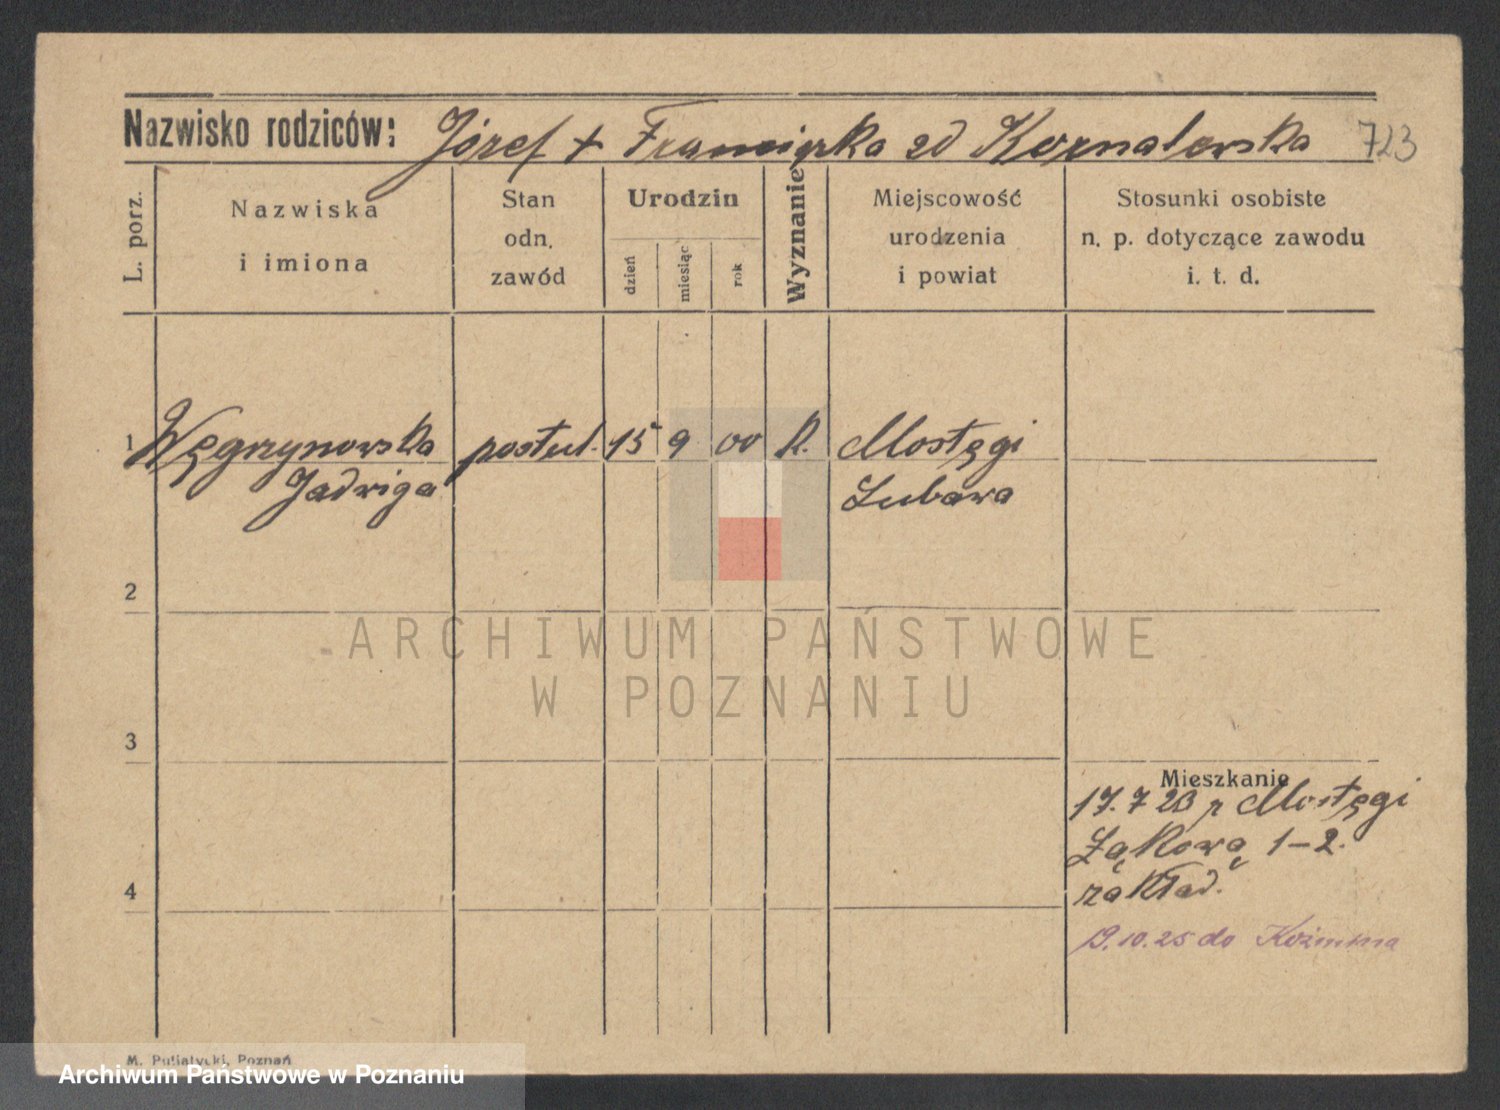 Nazwisko rodziców: Józef + Franciszka zd Koznalewska 723
L. porz.
Nazwiska
i imiona
Stan
odn.
zawód
Urodzin
dzień
miesiąc
rok
Wyznanie
Miejscowość
urodzenia
i powiat
Stosunki osobiste
n. p. dotyczące zawodu
i. t. d.
1 Węgrzynowska postul. 15 9 00 k. Mostęgi
Jadwiga Lubawa
2
ARCHIWUM PAŃSTWOWE
W POZNANIU
3
Mieszkanie
17.7 23 z Mostęgi
Łąkowa 1-2.
4 zakład.
19.10.25 do Koźmina
M. Putiatycki, Poznań
Archiwum Państwowe w Poznaniu